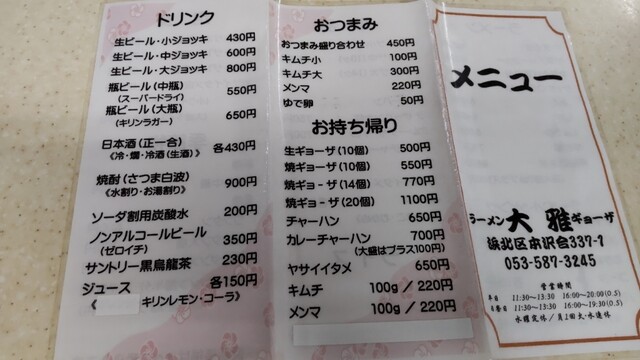 ドリンク
生ビール・小ジョッキ 430円
生ビール・中ジョッキ 600円
生ビール・大ジョッキ 800円
瓶ビール(中瓶) 550円
(スーパードライ)
瓶ビール(大瓶) 650円
(キリンラガー)
日本酒(正一合) 各430円
《冷・燗・冷酒(生酒)》
焼酎(さつま白波) 900円
《水割り・お湯割り》
ソーダ割用炭酸水 200円
ノンアルコールビール 350円
(ゼロイチ)
サントリー黒烏龍茶 230円
ジュース 各150円
《 キリンレモン・コーラ》
おつまみ
おつまみ盛り合わせ 450円
キムチ小 100円
キムチ大 300円
メンマ 220円
ゆで卵 50円
お持ち帰り
生ギョーザ(10個) 500円
焼ギョーザ(10個) 550円
焼ギョーザ(14個) 770円
焼ギョーザ(20個) 1100円
チャーハン 650円
カレーチャーハン 700円
(大盛はプラス100円)
ヤサイイタメ 650円
キムチ 100g / 220円
メンマ 100g / 220円
メニュー
ラーメン 大雅 ギョーザ
浜北区本沢合337-1
053-587-3245
営業時間
平日 11:30~13:30 16:00~20:00(O.S)
11:30~13:30 16:00~19:30(O.S)
水曜定休/月1回火・水連休